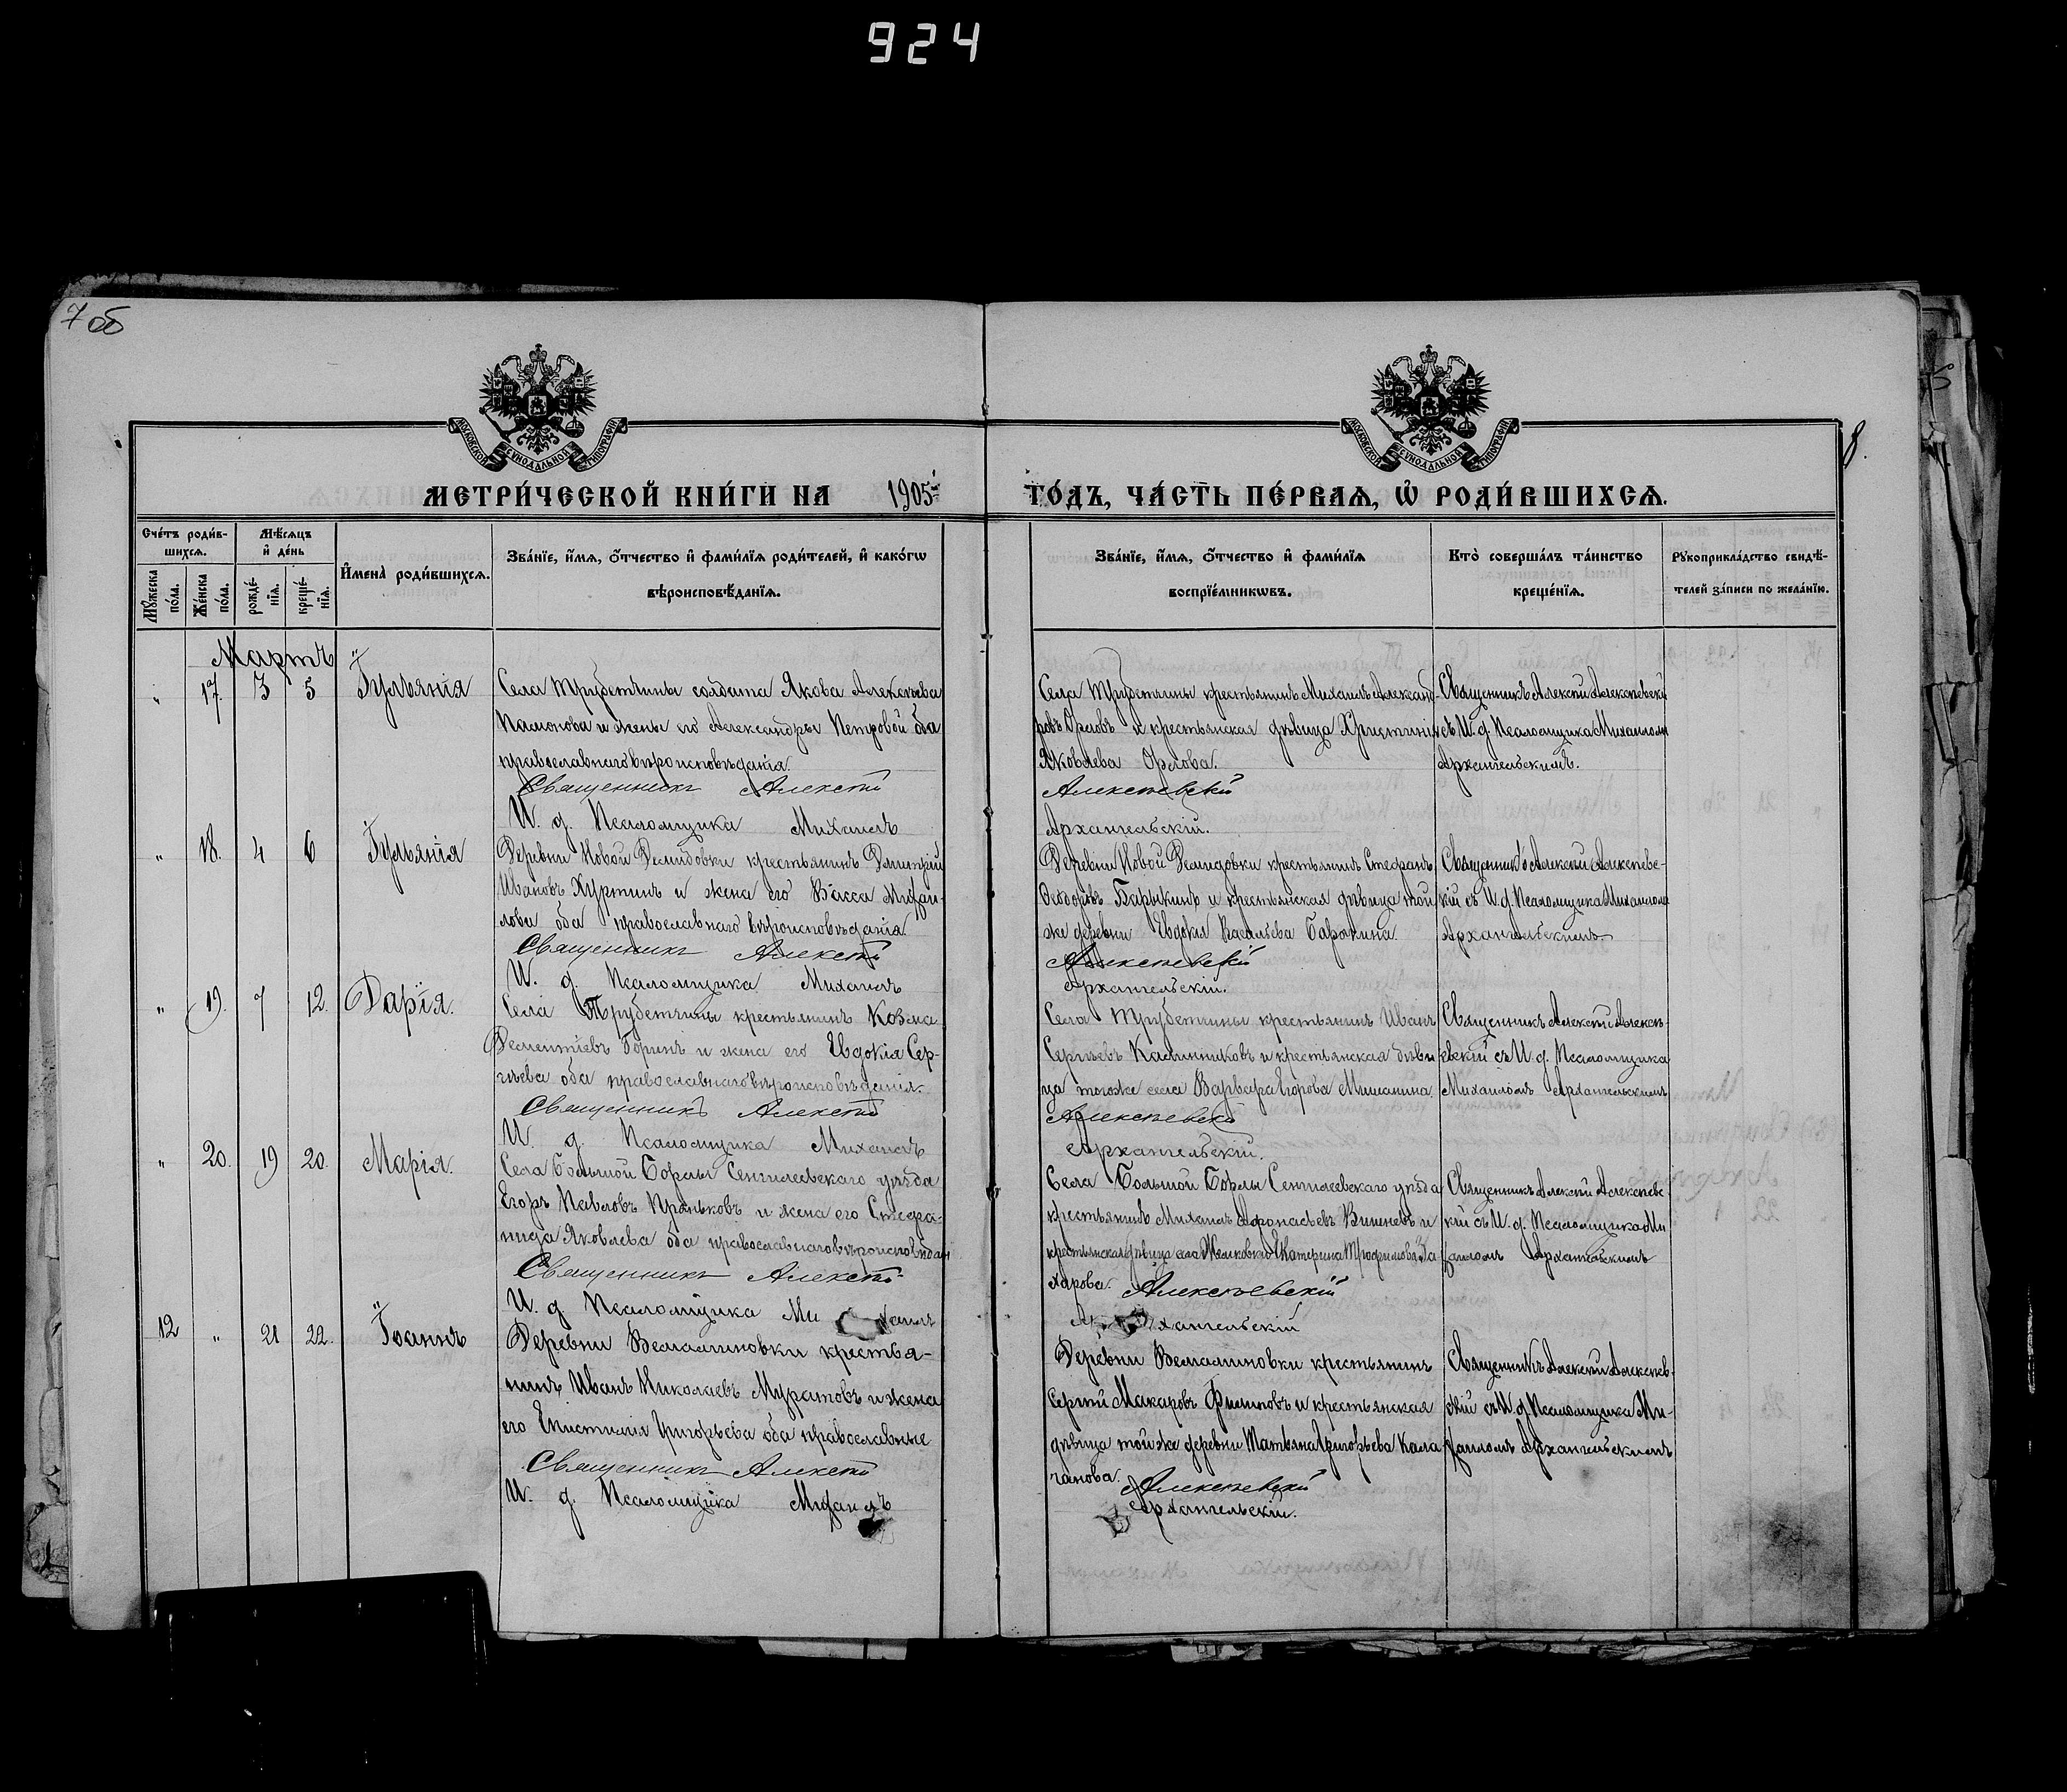 924
7 об
8.
МОСКОВСКОЙ СѴНОДАЛЬНОЙ ТИПОГРАФІИ
МОСКОВСКОЙ СѴНОДАЛЬНОЙ ТИПОГРАФІИ
МЕТРИ́ЧЕСКОЙ КНИ́ГИ НА 1905й
ГО́ДЪ, ЧА́СТЬ ПЕ́РВАѦ, Ѡ҆ РОДИ́ВШИХСѦ.
Сче́тъ роди́в-
шихсѧ.
Мꙋ́жеска по́ла.
Же́нска по́ла.
Мѣ́сѧцъ
и҆ де́нь
рожде́-
нїѧ.
креще́-
нїѧ.
И҆мена̀ роди́вшихсѧ.
Зва́нїе, и҆́мѧ, ѻ҆́тчество и҆ фами́лїѧ роди́телей, и҆ како́гѡ
вѣроисповѣ́данїѧ.
Зва́нїе, и҆́мѧ, ѻ҆́тчество и҆ фами́лїѧ
воспрїе́мникѡвъ.
Кто̀ соверша́лъ та́инство
креще́нїѧ.
Рꙋкоприкла́дство свидѣ́-
телей за́писи по жела́нїю.
Мартъ
" 17. 3 5 Іульянія
Села Трубетчины солдата Якова Алексѣева
Памонова и жены его Александры Петровой оба
православнаго вѣроисповѣданія.
Священникъ Алексѣй
И. д. Псаломщика Михаилъ
Села Трубетчины крестьянинъ Михаилъ Александ-
ровъ Орловъ и крестьянская дѣвица Христинія
Яковлева Орлова.
Алексѣевскій
Архангельскій.
Священникъ Алексѣй Алексѣевскій
съ И. д. Псаломщика Михаиломъ
Архангельскимъ.
" 18. 4 6 Іульянія
Деревни Новой Демидовки крестьянинъ Димитрій
Ивановъ Хуртинъ и жена его Васса Михаи-
лова оба православнаго вѣроисповѣданія
Священникъ Алексѣй
И. д. Псаломщика Михаилъ
Деревни Новой Демидовки крестьянинъ Стефанъ
Ѳеодоровъ Барыкинъ и крестьянская дѣвица той
же деревни Евдокія Васильева
Алексѣевскій
Архангельскій.
Священникъ Алексѣй Алексѣевс-
кій съ И. д. Псаломщика Михаиломъ
Архангельскимъ.
" 19. 7 12. Дарія.
Села Трубетчины крестьянинъ Козма
Дементіевъ Горинъ и жена его Евдокія Сер-
гѣева оба православнаго вѣроисповѣданія.
Священникъ Алексѣй
И. д. Псаломщика Михаилъ
Села Трубетчины крестьянинъ Иванъ
Сергѣевъ Калинниковъ и крестьянская дѣви
ца тогоже села Варвара Егорова Мишанина.
Алексѣевскій
Архангельскій.
Священникъ Алексѣй Алексѣ-
евскій съ И. д. Псаломщика
Михаиломъ Архангельскимъ
" 20. 19 20. Марія.
Села Большой Борлы Сенгилеевскаго уѣзда
Егоръ Павловъ Проньковъ и жена его Стефа-
нида Яковлева оба православнаго вѣроисповѣдан
Священникъ Алексѣй
И. д. Псаломщика Михаилъ
Села Большой Борлы Сенгилеевскаго уѣзда
крестьянинъ Михаилъ Афонасьевъ Вишневъ и
крестьянская дѣвица села Екатерина Трофимова За
харова. Алексѣевскій
Архангельскій
Священникъ Алексѣй Алексѣевс-
кій съ И. д. Псаломщика Ми
хаиломъ Архангельскимъ
12 " 21 22. Іоаннъ
Деревни Веніаминовки крестья-
нинъ Иванъ Николаевъ Муратовъ и жена
его Епистимія Григорьева оба православные
Священникъ Алексѣй
И. д. Псаломщика Михаилъ
Деревни Веніаминовки крестьянинъ
Сергѣй Макаровъ Филиповъ и крестьянская
дѣвица той же деревни Татьяна Григорьева Кала
чанова. Алексѣевскій
Архангельскій.
Священникъ Алексѣй Алексѣев-
скій съ И. д. Псаломщика Ми-
хаиломъ Архангельскимъ